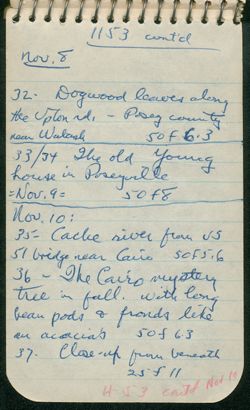 1153 cont'd
Nov. 8
32- Dogwood leaves along
the Upton rd. - Posey county
near Wabash 50 f 6.3
33/34 The old Young
house in Poseyville
=Nov. 9= 50 f 8
Nov. 10:
35- Cache river from US
51 bridge near Cairo 50 f 5.6
36 - The Cairo mystery
tree in fall. With long
bean pods & fronds like
an acacia's 50 f 6.3
37. Close-up from beneath
25 f 11
H-53 cont'd Nov 10